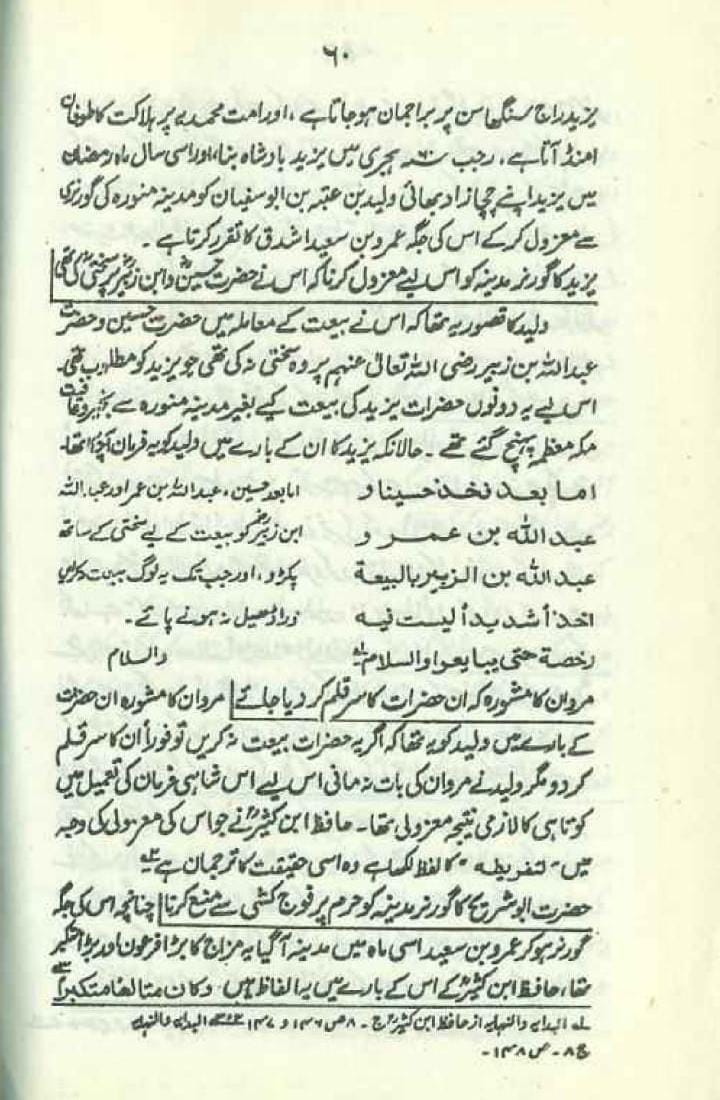 ۶۰
یزید راج سنگھاسن پر براجمان ہو جاتا ہے، اور امت محمدیہ پر ہلاکت کا طوفان
امنڈ آتا ہے، رجب ۶۰ ہجری میں یزید بادشاہ بنا، اور اسی سال ماہ رمضان
میں یزید اپنے چچا زاد بھائی ولید بن عتبہ بن ابو سفیان کو مدینہ منورہ کی گورنری
سے معزول کر کے اس کی جگہ عمرو بن سعید اشدق کا تقرر کرتا ہے۔
یزید کا گورنر مدینہ کو اس لیے معزول کرنا کہ اس نے حضرت حسینؓ و ابن زبیرؓ پر سختی نہ کی تھی
ولید کا قصور یہ تھا کہ اس نے بیعت کے معاملہ میں حضرت حسین و حضرت
عبداللہ بن زبیر رضی اللہ تعالیٰ عنہم پر وہ سختی نہ کی تھی جو یزید کو مطلوب تھی۔
اس لیے یہ دونوں حضرات یزید کی بیعت کیے بغیر مدینہ منورہ سے بخیر و عافیت
مکہ معظمہ پہنچ گئے تھے۔ حالانکہ یزید کا ان کے بارے میں ولید کو یہ فرمان آچکا تھا۔
اما بعد فخذ حسینا و
عبد الله بن عمر و
عبد الله بن الزبیر بالبیعة
اخذ أشدیدا لیست فیه
رخصة حتی یبایعوا والسلام لہ
اما بعد حسین، عبداللہ بن عمر اور عبداللہ
ابن زبیرؓ کو بیعت کے لیے سختی کے ساتھ
پکڑو، اور جب تک یہ لوگ بیعت نہ کریں
ذرا ڈھیل نہ ہونے پائے۔
والسلام
مروان کا مشورہ کہ ان حضرات کا سر قلم کر دیا جائے مروان کا مشورہ ان حضرت
کے بارے میں ولید کو یہ تھا کہ اگر یہ حضرات بیعت نہ کریں تو فوراً ان کا سر قلم
کر دو مگر ولید نے مروان کی بات نہ مانی اس لیے اس شاہی فرمان کی تعمیل میں
کوتاہی کا لازمی نتیجہ معزولی تھا۔ حافظ ابن کثیرؒ نے جو اس کی معزولی کی وجہ
میں "لتفریطہ" کا لفظ لکھا ہے وہ اسی حقیقت کا ترجمان ہے
حضرت ابو شریحؓ کا گورنر مدینہ کو حرم پر فوج کشی سے منع کرنا چنانچہ اس کی جگہ
گورنر ہو کر عمرو بن سعید اسی ماہ میں مدینہ آگیا یہ مزاج کا بڑا فرعون اور بڑا متکبر
تھا، حافظ ابن کثیرؒ کے اس کے بارے میں یہ الفاظ ہیں وکان متالها متکبراً
لہ البدایہ والنہایہ از حافظ ابن کثیرؒ ج۔ ۸ ص ۱۴۶ و ۱۴۷ البدایہ والنہایہ
ج ۸۔ ص ۱۴۸۔